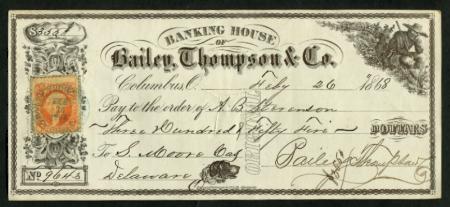 $355
BANKING HOUSE
OF
Bailey, Thompson & Co.
Columbus, O. Feby 26 1868
Pay to the order of A. B. Stevenson
Three Hundred & Fifty Five DOLLARS
To S. Moore Cas
Delaware
Bailey Thompson
No 9643